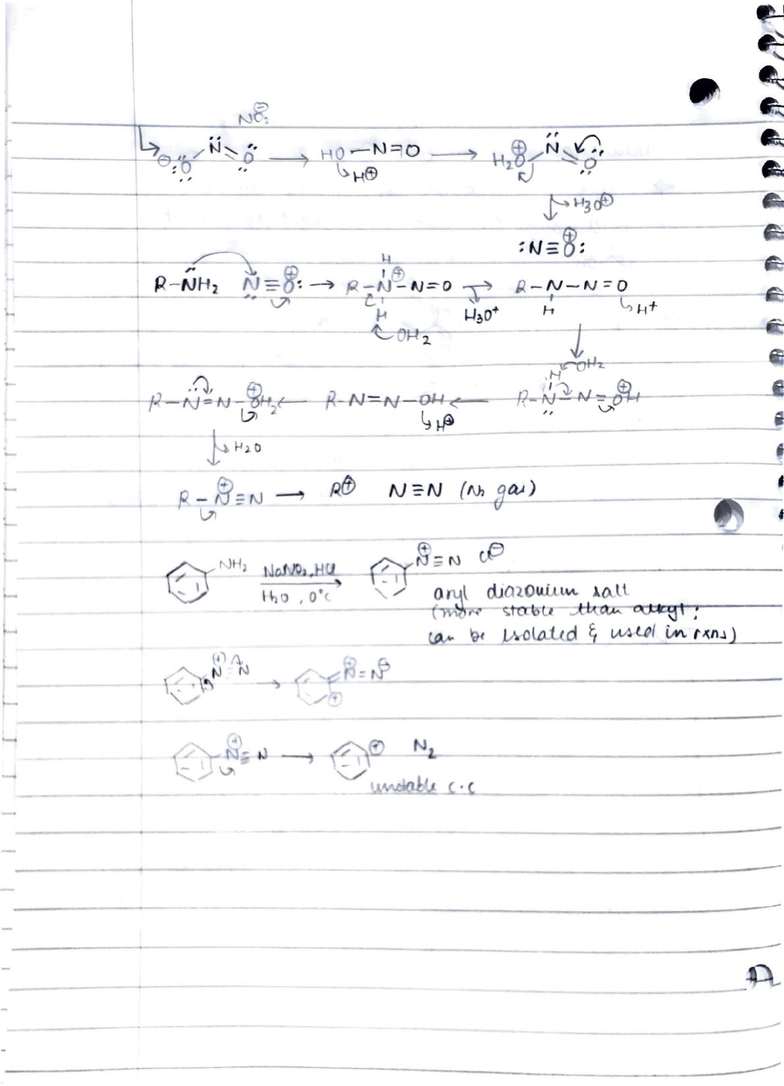 NO₂⊖
⊖:Ö: – N̈ = Ö: → HO–N=O H⊕ → H₂O⊕ – N̈ = Ö:
→ H3O⊕
:N≡O⊕:
R–N̈H₂ N̈≡O⊕: → R–N⊕(H)(H)–N=O → R–N–N=O
H OH₂ H3O⁺ H H⁺
R–N̈=N̈–O⊕H₂ ← R–N=N–OH ← R–N̈–N=O⊕H
H⊕ H OH₂
→ H₂O
R–N⊕≡N → R⊕ N≡N (N₂ gas)
NH₂ NaNO₂, HCl → N⊕≡N Cl⊖
H₂O, 0°C
aryl diazonium salt
(more stable than alkyl;
can be isolated & used in rxns)
N⊕≡N → N⊕=N⊖
⊕
N⊕≡N → ⊕ N₂
unstable c.c